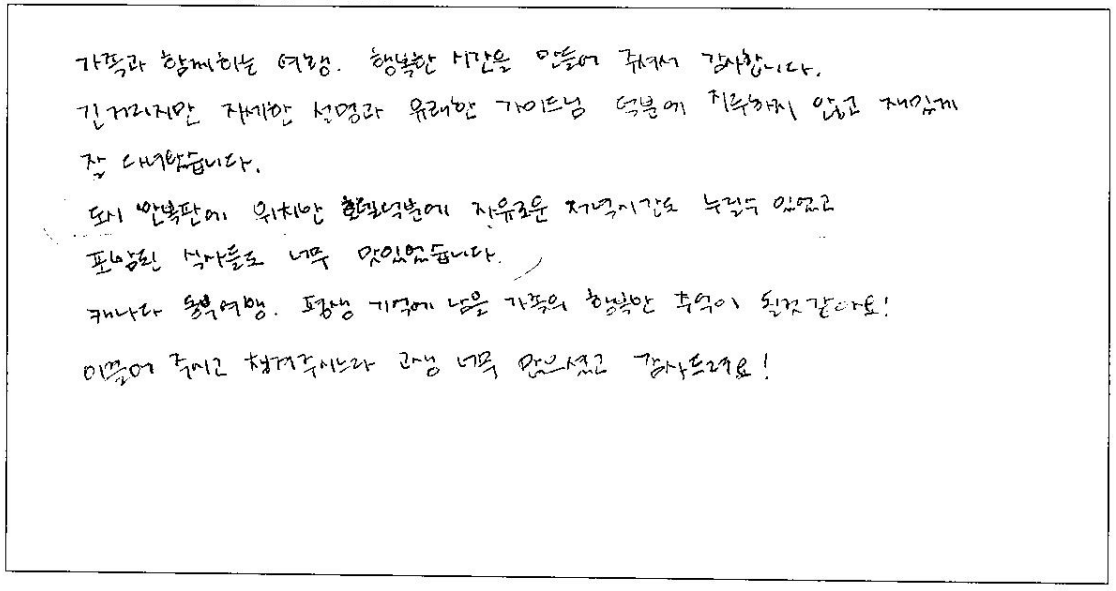 가족과 함께하는 여행. 행복한 시간을 만들어 주셔서 감사합니다.
긴거리지만 자세한 설명과 유쾌한 가이드님 덕분에 지루하지 않고 재밌게
잘 다녀왔습니다.
도시 한복판에 위치한 호텔덕분에 자유로운 저녁시간도 누릴수 있었고
포함된 식사들도 너무 맛있었습니다.
캐나다 동부여행. 평생 기억에 남을 가족의 행복한 추억이 될것 같아요!
이끌어 주시고 챙겨주시느라 고생 너무 많으셨고 감사드려요!